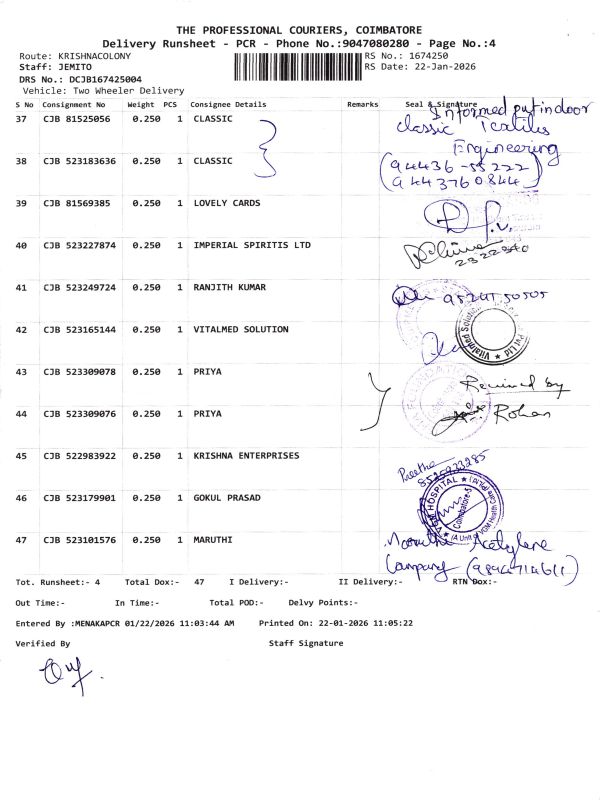 THE PROFESSIONAL COURIERS, COIMBATORE
Delivery Runsheet - PCR - Phone No.:9047080280 - Page No.:4
Route: KRISHNACOLONY RS No.: 1674250
Staff: JEMITO RS Date: 22-Jan-2026
DRS No.: DCJB167425004
Vehicle: Two Wheeler Delivery
S No Consignment No Weight PCS Consignee Details Remarks Seal & Signature
Informed put in door
37 CJB 81525056 0.250 1 CLASSIC classic Textiles
Engineering
38 CJB 523183636 0.250 1 CLASSIC (94436-55222
9443760844)
39 CJB 81569385 0.250 1 LOVELY CARDS
40 CJB 523227874 0.250 1 IMPERIAL SPIRITIS LTD
2322840
41 CJB 523249724 0.250 1 RANJITH KUMAR 95241 50505
42 CJB 523165144 0.250 1 VITALMED SOLUTION Vitalmed Solution Pvt Ltd
43 CJB 523309078 0.250 1 PRIYA Received by
44 CJB 523309076 0.250 1 PRIYA Rohan
45 CJB 522983922 0.250 1 KRISHNA ENTERPRISES Preetha
46 CJB 523179901 0.250 1 GOKUL PRASAD HOSPITAL Coimbatore-5
47 CJB 523101576 0.250 1 MARUTHI Maruthi Acetylene
Company (9894714611)
Tot. Runsheet:- 4 Total Dox:- 47 I Delivery:- II Delivery:- RTN Dox:-
Out Time:- In Time:- Total POD:- Delvy Points:-
Entered By :MENAKAPCR 01/22/2026 11:03:44 AM Printed On: 22-01-2026 11:05:22
Verified By Staff Signature